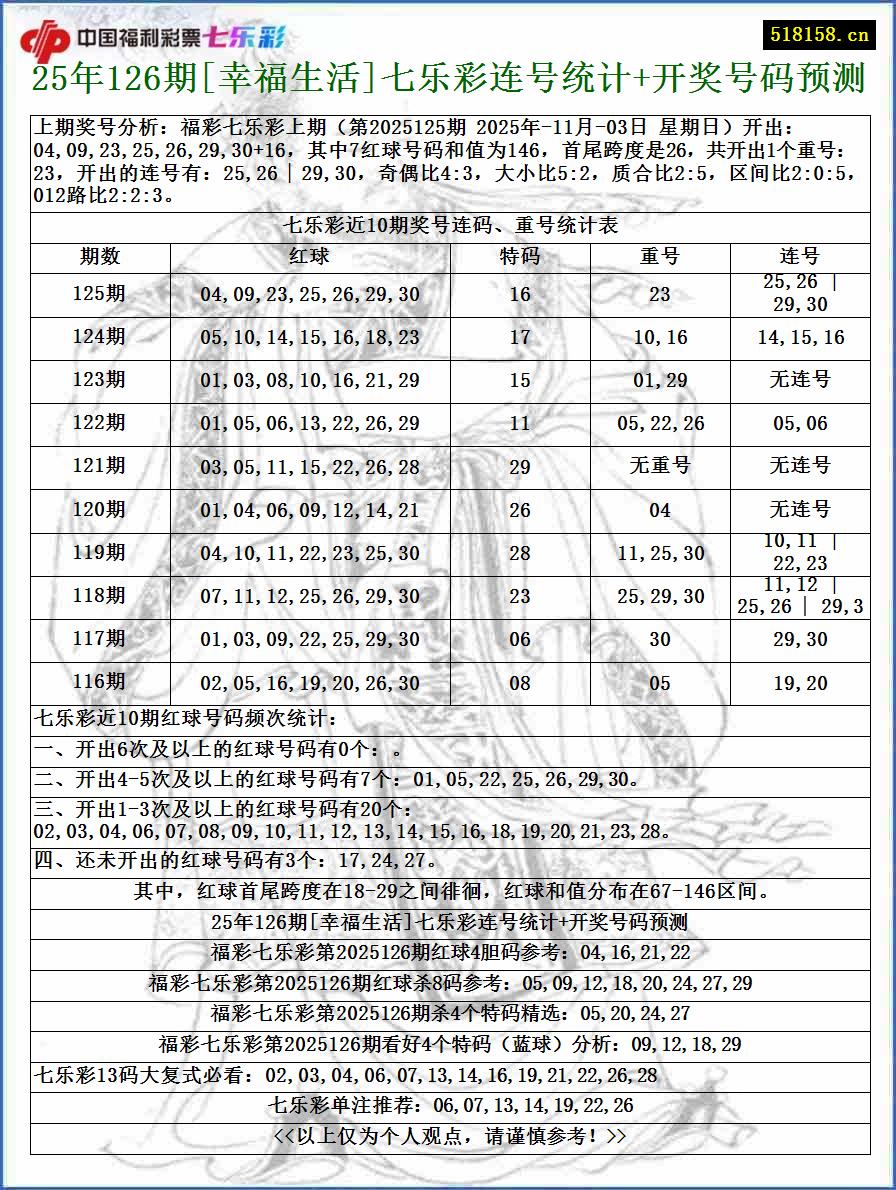 中国福利彩票七乐彩
518158.cn
25年126期[幸福生活]七乐彩连号统计+开奖号码预测
上期奖号分析：福彩七乐彩上期（第2025125期 2025年-11月-03日 星期日）开出：
04,09,23,25,26,29,30+16，其中7红球号码和值为146，首尾跨度是26，共开出1个重号：
23，开出的连号有：25,26 | 29,30，奇偶比4:3，大小比5:2，质合比2:5，区间比2:0:5，
012路比2:2:3。
七乐彩近10期奖号连码、重号统计表
期数 红球 特码 重号 连号
125期 04,09,23,25,26,29,30 16 23 25,26 | 29,30
124期 05,10,14,15,16,18,23 17 10,16 14,15,16
123期 01,03,08,10,16,21,29 15 01,29 无连号
122期 01,05,06,13,22,26,29 11 05,22,26 05,06
121期 03,05,11,15,22,26,28 29 无重号 无连号
120期 01,04,06,09,12,14,21 26 04 无连号
119期 04,10,11,22,23,25,30 28 11,25,30 10,11 | 22,23
118期 07,11,12,25,26,29,30 23 25,29,30 11,12 | 25,26 | 29,3
117期 01,03,09,22,25,29,30 06 30 29,30
116期 02,05,16,19,20,26,30 08 05 19,20
七乐彩近10期红球号码频次统计：
一、开出6次及以上的红球号码有0个：。
二、开出4-5次及以上的红球号码有7个：01,05,22,25,26,29,30。
三、开出1-3次及以上的红球号码有20个：
02,03,04,06,07,08,09,10,11,12,13,14,15,16,18,19,20,21,23,28。
四、还未开出的红球号码有3个：17,24,27。
其中，红球首尾跨度在18-29之间徘徊，红球和值分布在67-146区间。
25年126期[幸福生活]七乐彩连号统计+开奖号码预测
福彩七乐彩第2025126期红球4胆码参考：04,16,21,22
福彩七乐彩第2025126期红球杀8码参考：05,09,12,18,20,24,27,29
福彩七乐彩第2025126期杀4个特码精选：05,20,24,27
福彩七乐彩第2025126期看好4个特码（蓝球）分析：09,12,18,29
七乐彩13码大复式必看：02,03,04,06,07,13,14,16,19,21,22,26,28
七乐彩单注推荐：06,07,13,14,19,22,26
<<以上仅为个人观点，请谨慎参考！>>